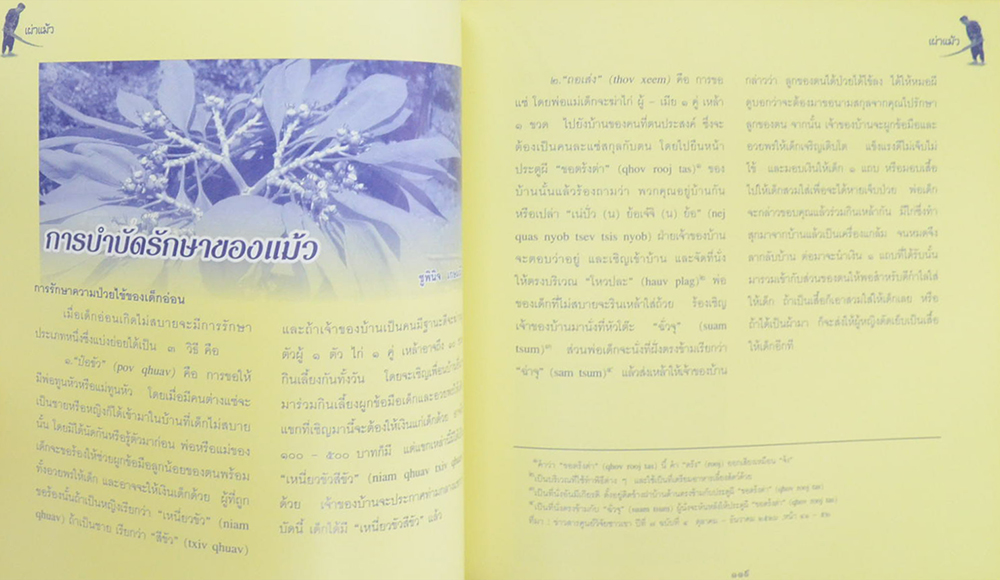 เผ่าแม้ว
การบำบัดรักษาของแม้ว
ชูพินิจ
การรักษาความป่วยไข้ของเด็กอ่อน
เมื่อเด็กอ่อนเกิดไม่สบายจะมีการรักษา
ประเภทหนึ่งซึ่งแบ่งย่อยได้เป็น ๓ วิธี คือ
๑."ป๋อขัว" (pov qhuav) คือ การขอให้
มีพ่อทูนหัวหรือแม่ทูนหัว โดยเมื่อมีคนต่างแซ่จะ
เป็นชายหรือหญิงก็ได้เข้ามาในบ้านที่เด็กไม่สบาย
นั้น โดยมิได้นัดกันหรือรู้ตัวมาก่อน พ่อหรือแม่ของ
เด็กจะขอร้องให้ช่วยผูกข้อมือลูกน้อยของตนพร้อม
ทั้งอวยพรให้เด็ก และอาจจะให้เงินแก่เด็กด้วย ผู้ที่ถูก
ขอร้องนั้นถ้าเป็นหญิงเรียกว่า "เหนี่ยวขัว" (niam
qhuav) ถ้าเป็นชาย เรียกว่า "สีขัว" (txiv qhuav)
และถ้าเจ้าของบ้านเป็นคนมีฐานะดีจะ
ตัวผู้ ๑ ตัว ไก่ ๑ คู่ เหล้าอาจถึง ๑๐
กินเลี้ยงกันทั้งวัน โดยจะเชิญเพื่อนบ้าน
มาร่วมกินเลี้ยงผูกข้อมือเด็กและอวยพร
แขกที่เชิญมานี้จะต้องให้เงินแก่เด็กด้วย
๑๐๐ - ๕๐๐ บาทก็มี แต่แขกเหล่านี้
"เหนี่ยวขัวสีขัว" (niam qhuav txiv qhuav)
ด้วย เจ้าของบ้านจะประกาศท่ามกลาง
บัดนี้ เด็กได้มี "เหนี่ยวขัวสีขัว" แล้ว
เผ่าแม้ว
๒."ถอเส่ง" (thov xeem) คือ การขอ
แซ่ โดยพ่อแม่เด็กจะฆ่าไก่ ผู้ - เมีย ๑ คู่ เหล้า
๑ ขวด ไปยังบ้านของคนที่ตนประสงค์ ซึ่งจะ
ต้องเป็นคนละแซ่สกุลกับตน โดยไปยืนหน้า
ประตูผี "ขอตร้งต่า" (qhov rooj tas) ของ
บ้านนั้นแล้วร้องถามว่า พวกคุณอยู่บ้านกัน
หรือเปล่า "เน่ปั่ว (น) ย้อเจ้จิ (น) ย้อ" (nej
quas nyob tsev tsis nyob) ฝ่ายเจ้าของบ้าน
จะตอบว่าอยู่ และเชิญเข้าบ้าน และจัดที่นั่ง
ให้ตรงบริเวณ "ไหวปละ" (hauv plag) พ่อ
ของเด็กที่ไม่สบายจะรินเหล้าใส่ถ้วย ร้องเชิญ
เจ้าของบ้านมานั่งที่หัวโต๊ะ "ฉั่วจุ" (suam
tsum) ส่วนพ่อเด็กจะนั่งที่ฝั่งตรงข้ามเรียกว่า
"ฉ่าจุ" (sam tsum) แล้วส่งเหล้าให้เจ้าของบ้าน
กล่าวว่า ลูกของตนได้ป่วยได้ไข้ลง ได้ให้หมอผี
ดูบอกว่าจะต้องมาขอนามสกุลจากคุณไปรักษา
ลูกของตน จากนั้น เจ้าของบ้านจะผูกข้อมือและ
อวยพรให้เด็กเจริญเติบโต แข็งแรงดีไม่เจ็บไม่
ไข้ และมอบเงินให้เด็ก ๑ แถบ หรือมอบเสื้อ
ไปให้เด็กสวมใส่เพื่อจะได้หายเจ็บป่วย พ่อเด็ก
จะกล่าวขอบคุณแล้วร่วมกินเหล้ากัน มีไก่ซึ่งทำ
สุกมาจากบ้านแล้วเป็นเครื่องแกล้ม จนหมดจึง
ลากลับบ้าน ต่อมาจะนำเงิน ๑ แถบที่ได้รับนั้น
มารวมเข้ากับส่วนของตนให้พอสำหรับตีกำไลใส่
ให้เด็ก ถ้าเป็นเสื้อก็เอาสวมใส่ให้เด็กเลย หรือ
ถ้าได้เป็นผ้ามา ก็จะส่งให้ผู้หญิงตัดเย็บเป็นเสื้อ
ให้เด็กอีกที
คำว่า "ขอตร้งต่า" (qhov rooj tas) นี้ คำ "ตร้ง" (rooj) ออกเสียงเหมือน "จ้ง"
เป็นบริเวณที่ใช้ทำพิธีต่าง ๆ และใช้เป็นที่เตรียมอาหารเลี้ยงสัตว์ด้วย
เป็นที่นั่งอันมีเกียรติ ตั้งอยู่ติดข้างฝาบ้านด้านตรงข้ามกับประตูผี "ขอตร้งต่า" (qhov rooj tas)
เป็นที่นั่งตรงข้ามกับ "ฉั่วจุ" (suam tsum) ผู้นั่งจะหันหลังให้ประตูผี "ขอตร้งต่า" (qhov rooj tas)
ที่มา : ข่าวสารศูนย์วิจัยชาวเขา ปีที่ ๘ ฉบับที่ ๔ ตุลาคม - ธันวาคม
๑๑๙